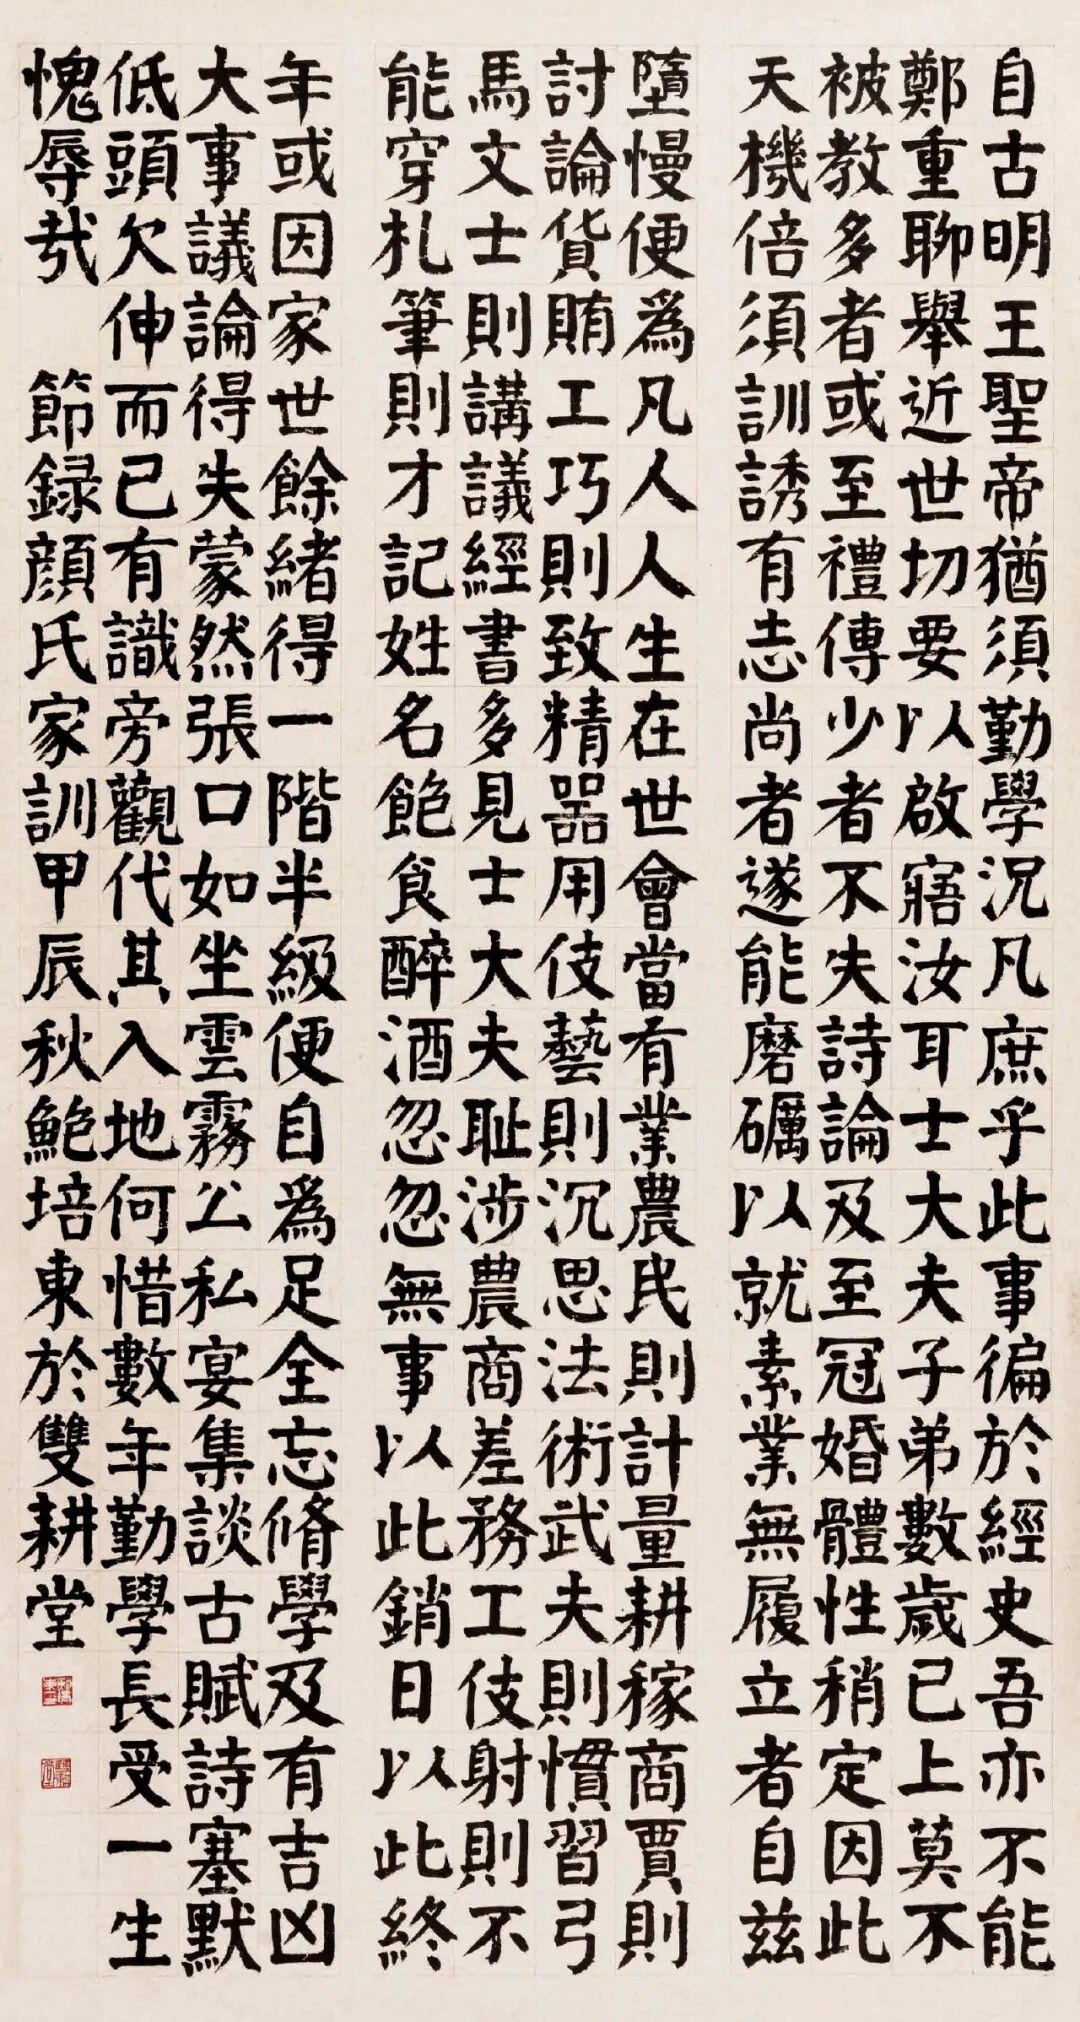 自古明王聖帝猶須勤學況凡庶乎此事徧於經史吾亦不能
鄭重聊舉近世切要以啟寤汝耳士大夫子弟數歲已上莫不
被教多者或至禮傳少者不失詩論及至冠婚體性稍定因此
天機倍須訓誘有志尚者遂能磨礪以就素業無履立者自茲
墮慢便爲凡人人生在世會當有業農民則計量耕稼商賈則
討論貨賄工巧則致精器用伎藝則沉思法術武夫則慣習弓
馬文士則講議經書多見士大夫耻涉農商差務工伎射則不
能穿札筆則才記姓名飽食醉酒忽忽無事以此銷日以此終
年或因家世餘緒得一階半級便自爲足全忘脩學及有吉凶
大事議論得失蒙然張口如坐雲霧公私宴集談古賦詩塞默
低頭欠伸而已有識旁觀代其入地何惜數年勤學長受一生
愧辱哉 節録顏氏家訓甲辰秋鮑培東於雙耕堂